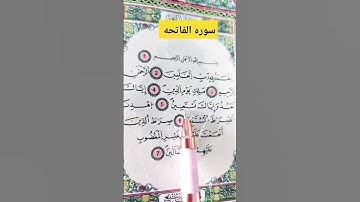 سوره الفاتحه
بِسْمِ اللَّهِ الرَّحْمَٰنِ الرَّحِيمِ 1
الْحَمْدُ لِلَّهِ رَبِّ الْعَالَمِينَ 2 الرَّحْمَٰنِ
الرَّحِيمِ 3 مَالِكِ يَوْمِ الدِّينِ 4 إِيَّاكَ
نَعْبُدُ وَإِيَّاكَ نَسْتَعِينُ 5 اهْدِنَا
الصِّرَاطَ الْمُسْتَقِيمَ 6 صِرَاطَ الَّذِينَ
أَنْعَمْتَ عَلَيْهِمْ غَيْرِ الْمَغْضُوبِ
عَلَيْهِمْ وَلَا الضَّالِّينَ 7